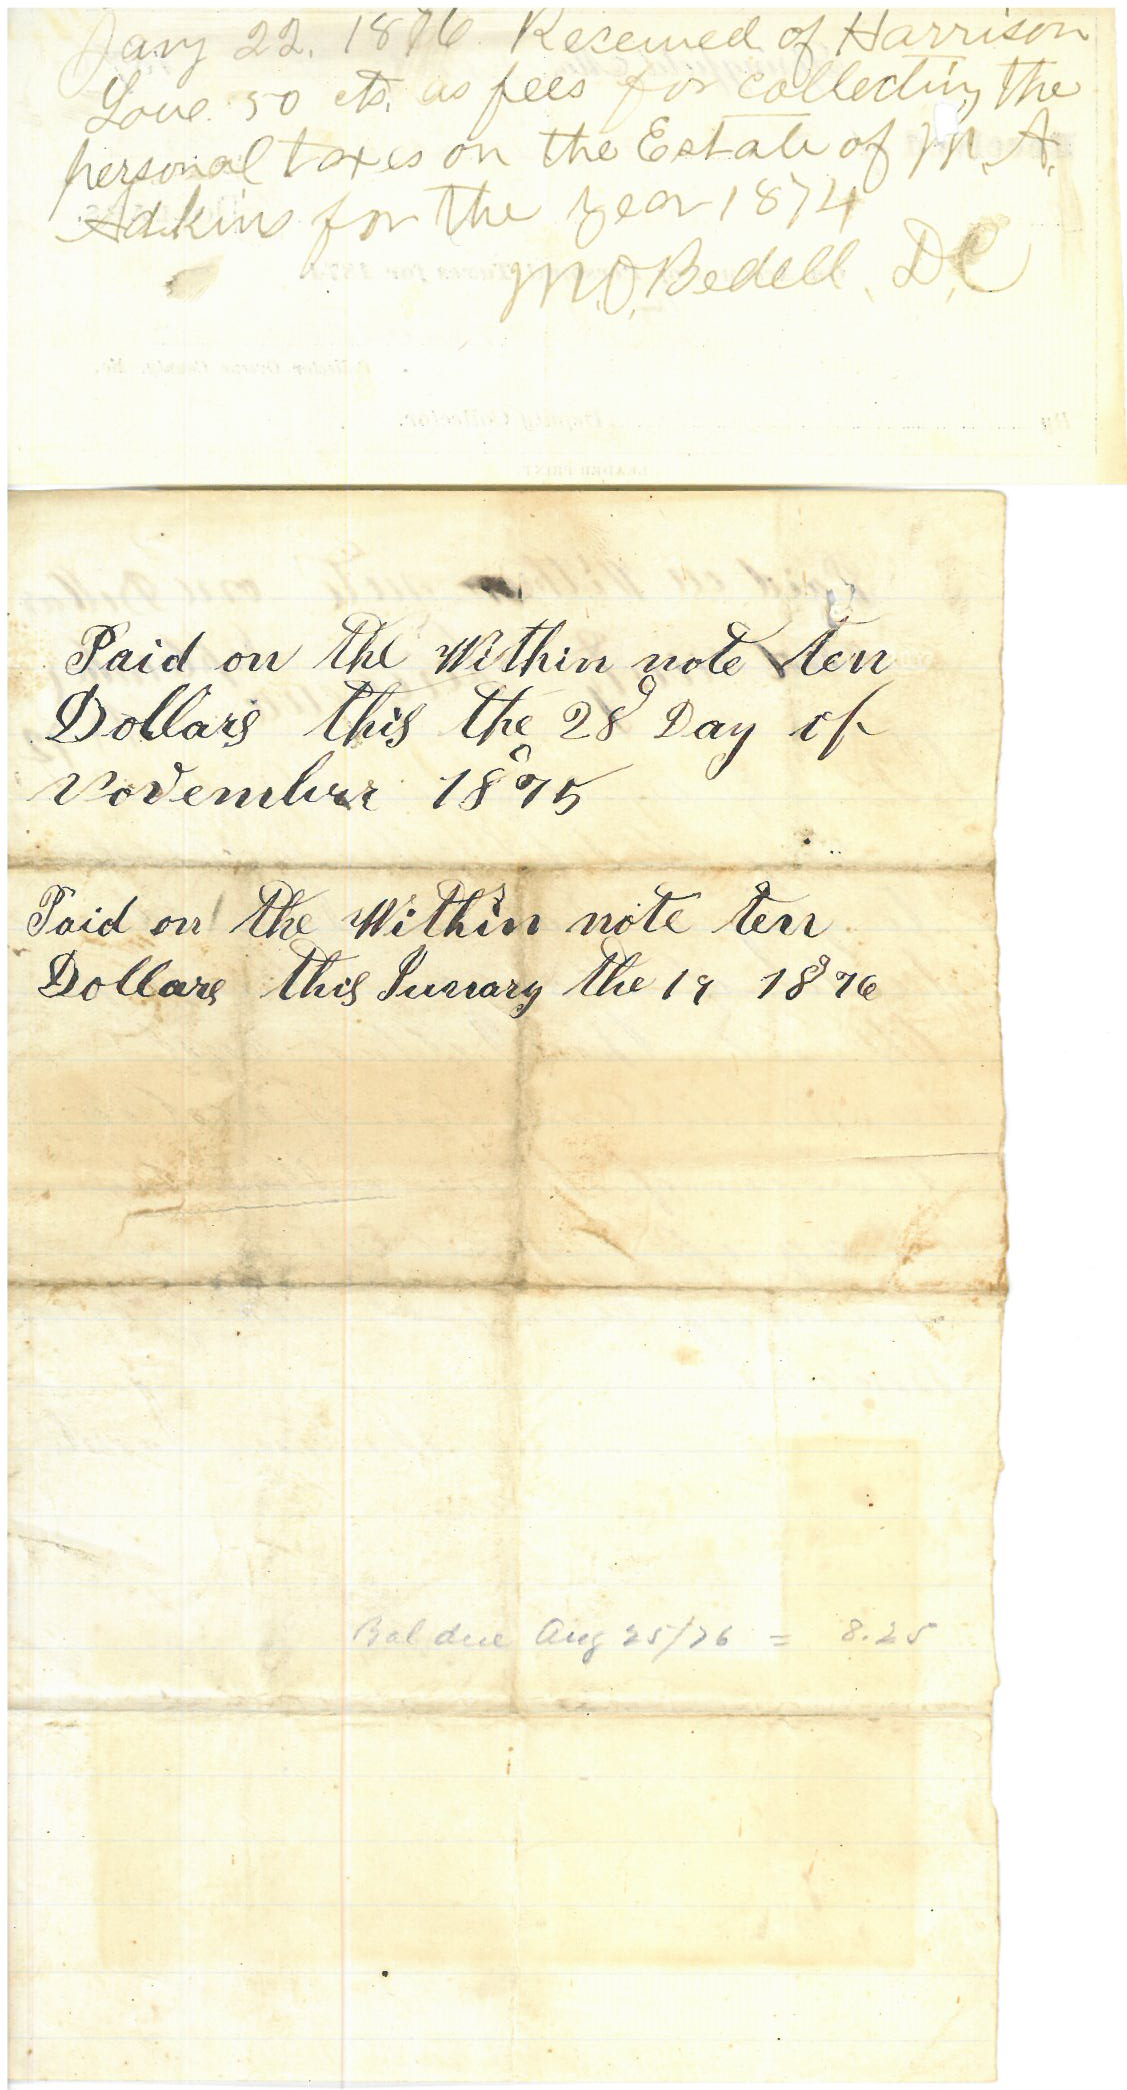 Jany 22. 1876. Received of Harrison
Love 50 cts. as fees for collecting the
personal taxes on the Estate of M. A.
Adkins for the year 1874
M.O. Bedell, D.C
Collector Greene County, Mo.
By Deputy Collector.
LEADER PRINT
Paid on the Within note ten
Dollars this the 28 Day of
November 1875
Paid on the Within note ten
Dollars this Junuary the 19 1876
Bal due Aug 25/76 = 8.25